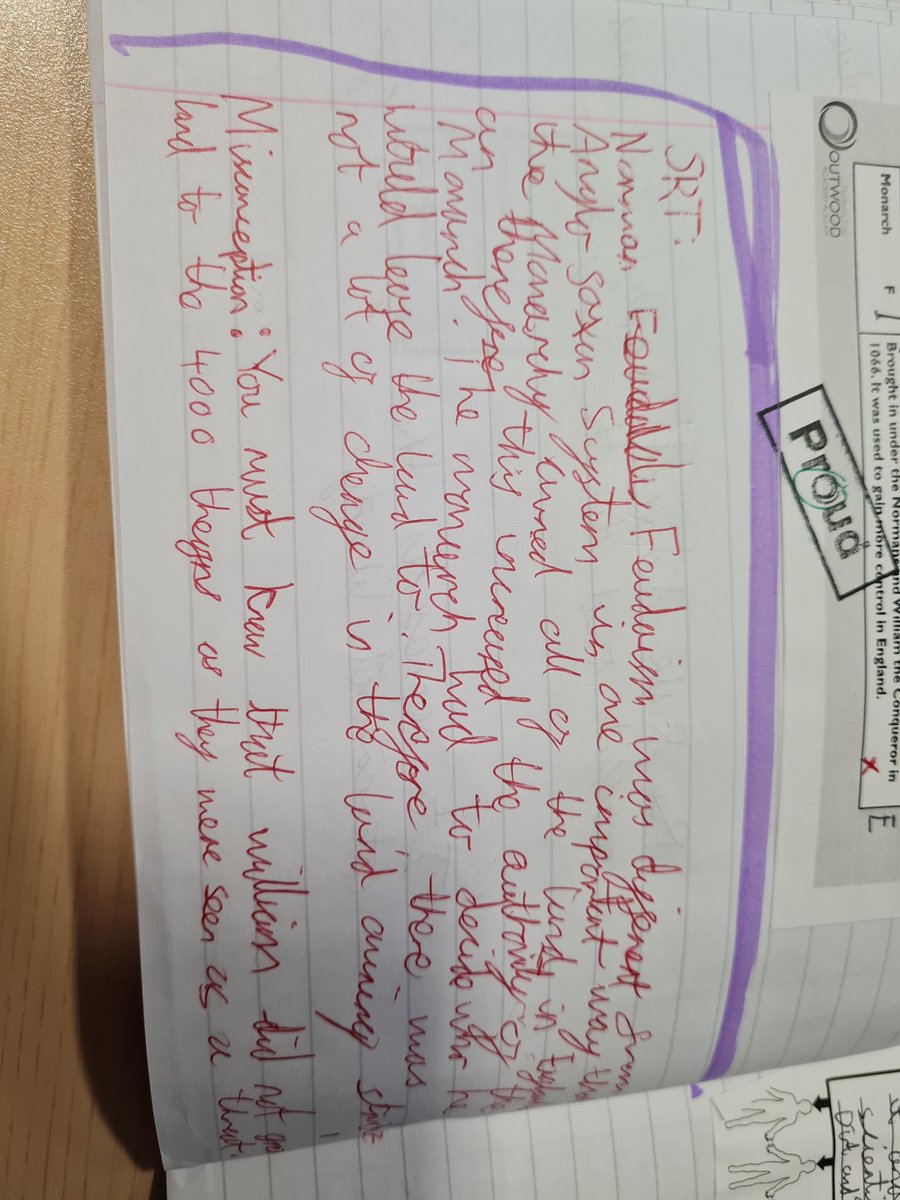 OUTWOOD
Monarch
F
1
Brought in under the Normans and William the Conqueror in
1066. It was used to gain more control in England.
E
Proud
SRT:
Norman Feudalism was different from
Anglo saxon System in one important way the
the Monarchy owned all of the land in England
an therefore this increased the authority of the
Monarch. The monarch had to decide who he
would leave the land to. Therefore there was
not a lot of change in the land owning
Misconception: You must know that william did not give
land to the 4000 thegns as they were seen as a threat.